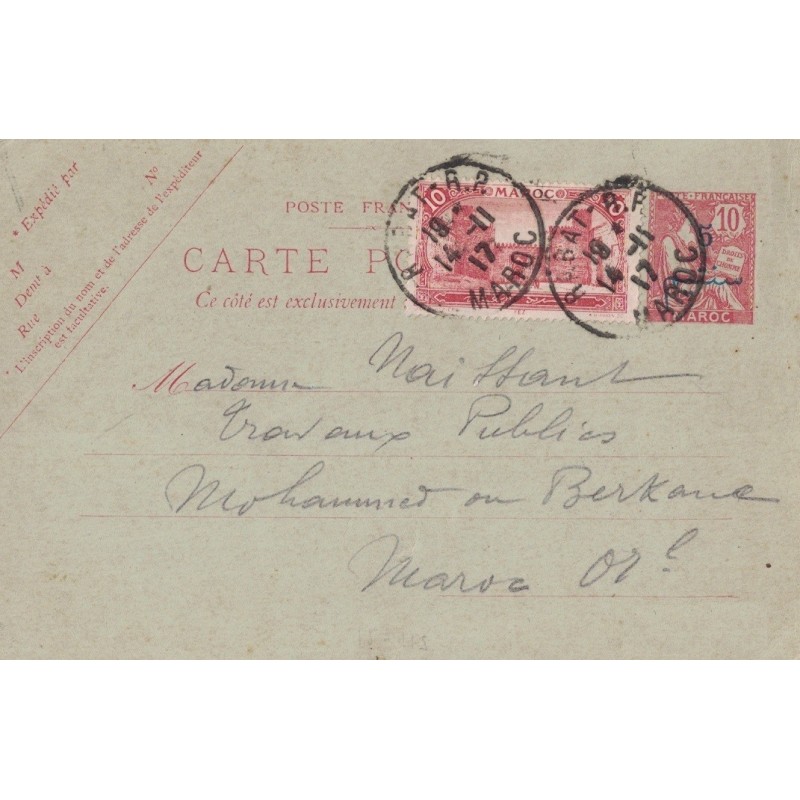 * Expédié par
N°
M
Demt à
Rue
L'inscription du nom et de l'adresse de l'expéditeur
est facultative.
POSTE FRAN
CARTE PO
Ce côté est exclusivement
10 MAROC
RABAT-R.P
18
14-11
17
MAROC
RABAT R.P
18
14-11
17
MAROC
TE-FRANÇAISE
10
DROITS DE L'HOMME
MAROC
Madame Naissant
Travaux Publics
Mohammed ou Berkane
Maroc Orl